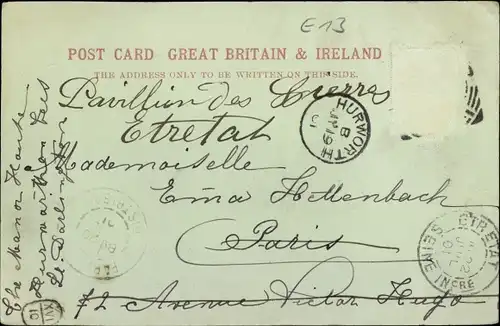 E13
POST CARD GREAT BRITAIN & IRELAND
THE ADDRESS ONLY TO BE WRITTEN ON THIS SIDE.
Pavillion des
Etretat
Mademoiselle
Ema Hellenbach
Paris
72 Avenue Victor Hugo
The Manor House
Hurworth on Tees
Nr. Darlington
HURWORTH
B
MY 19
01
ETRETAT
SEINE INFRE
XVI
10